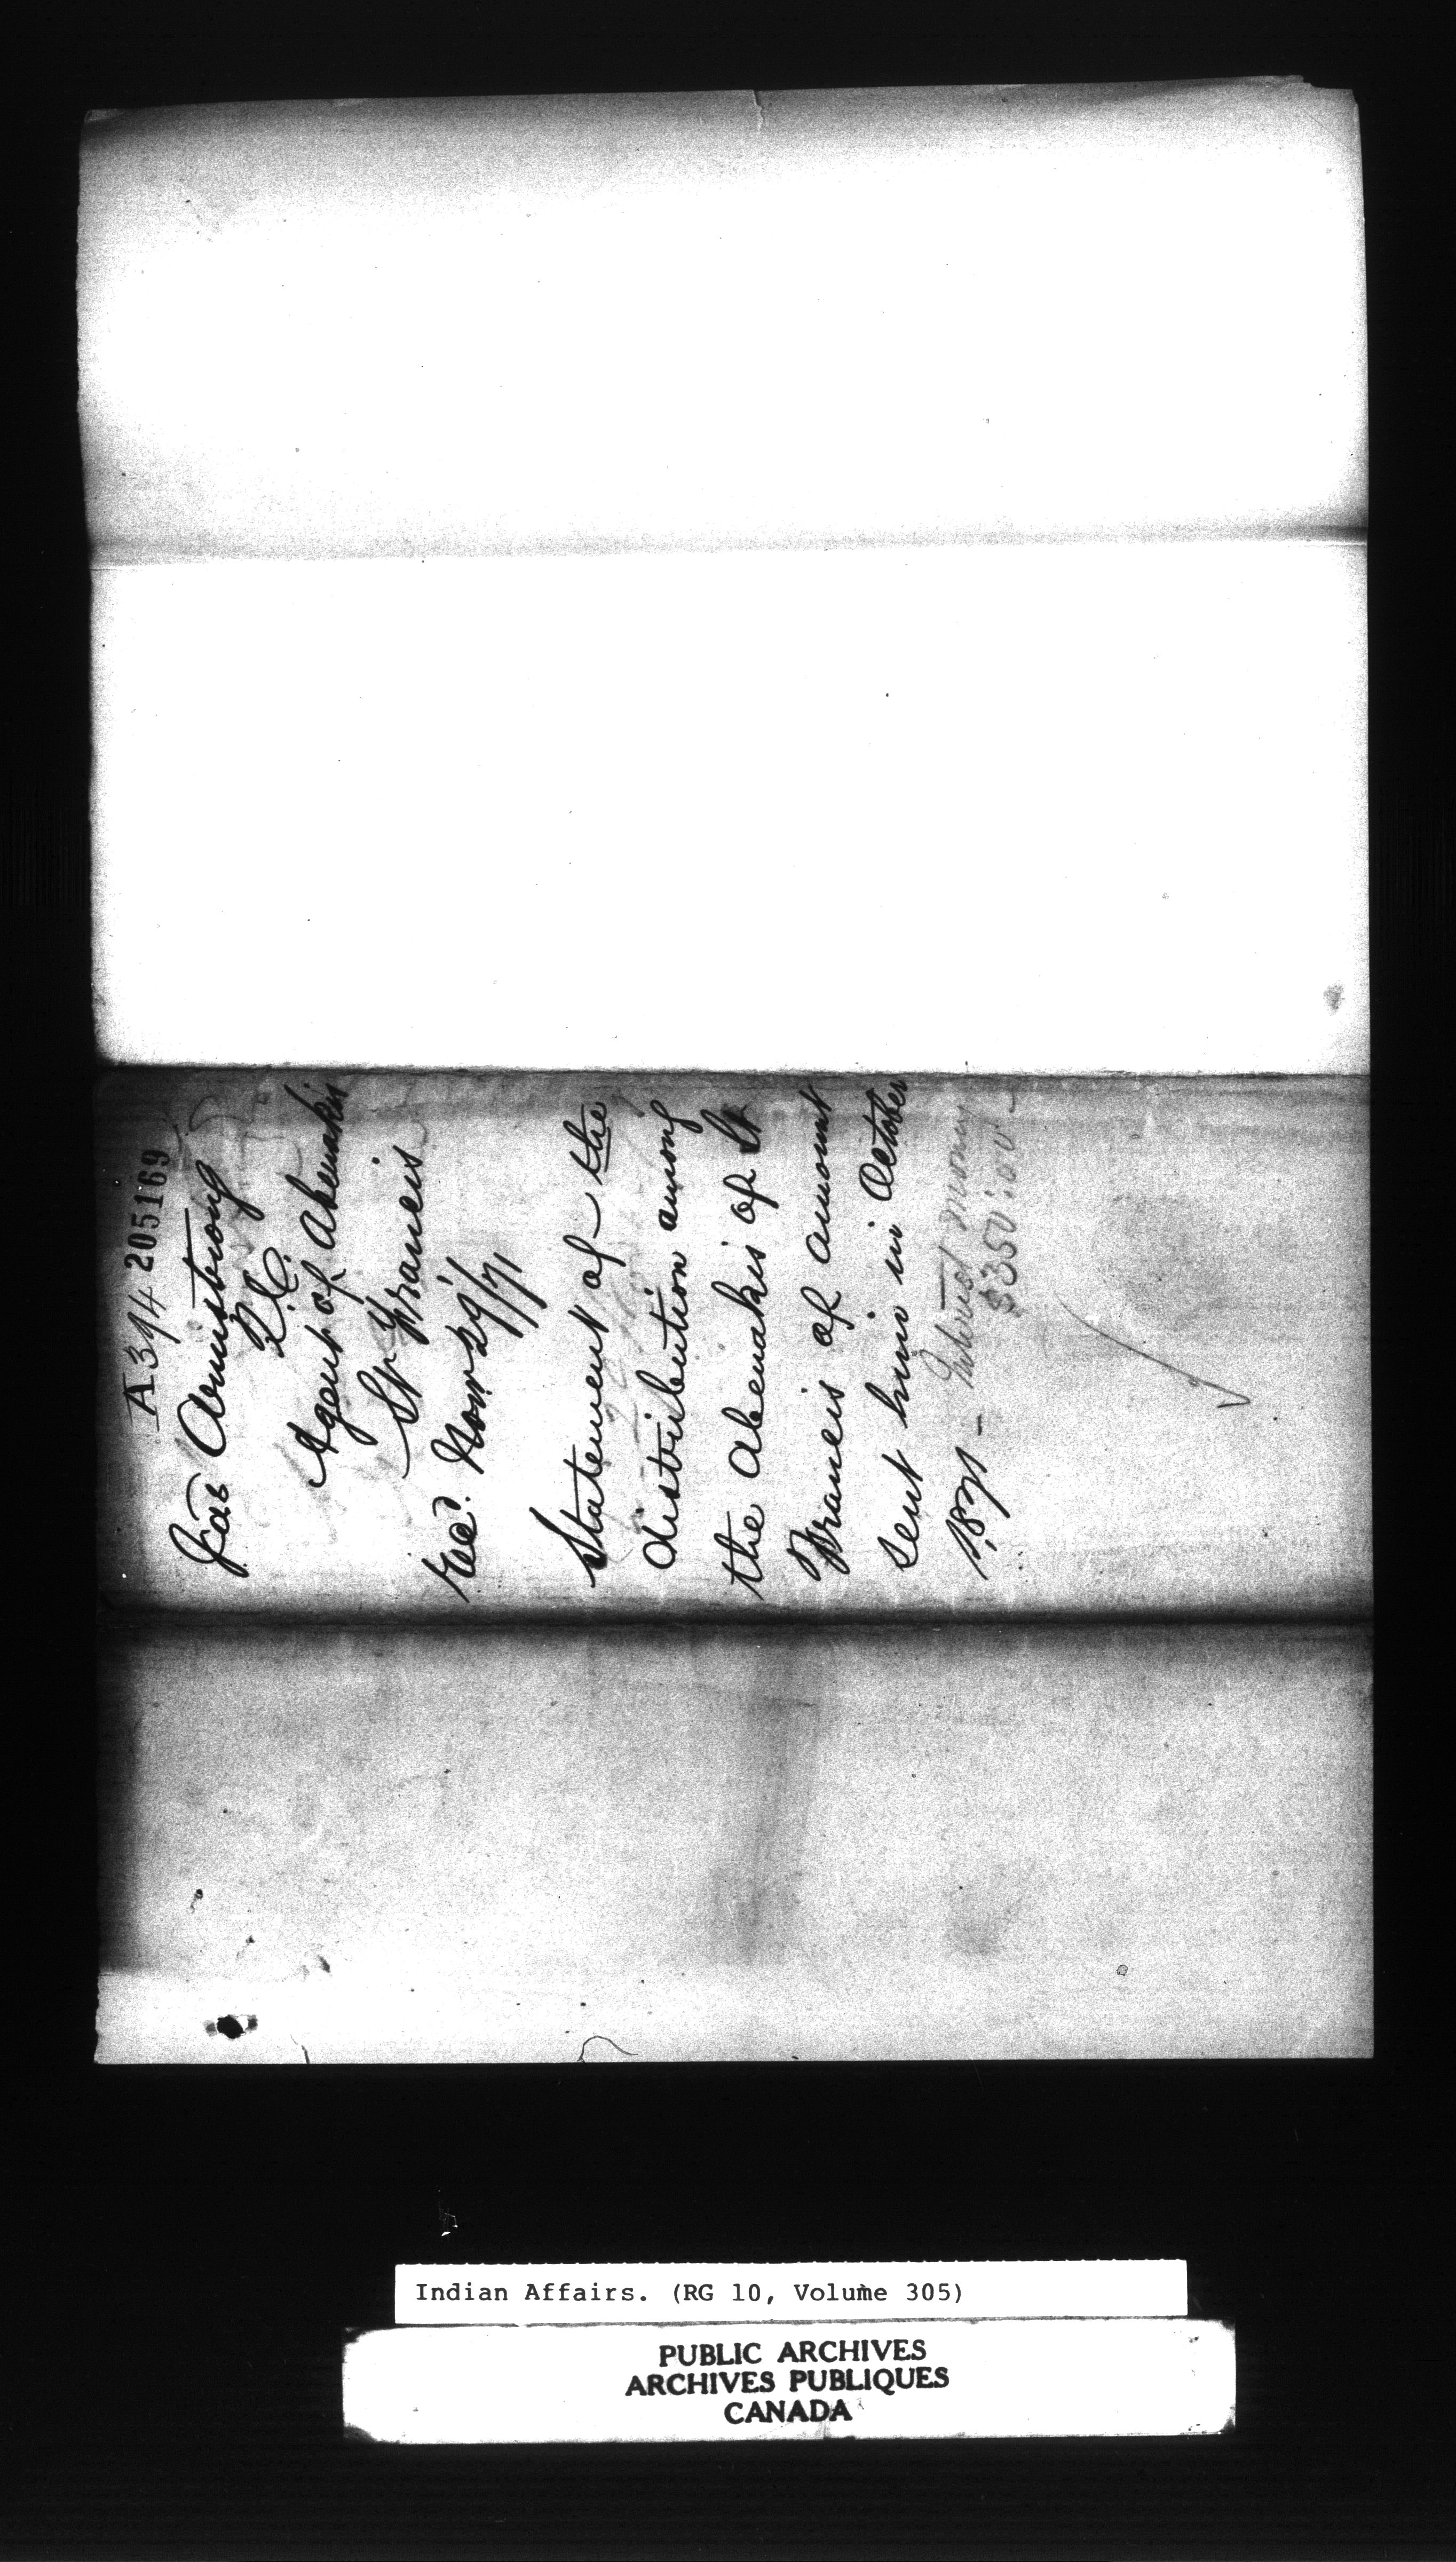 A 394 205169
Jas Armstrong
Agent of Abenakis
St Francis
Recd. Novr 29/71
Statement of the
distribution among
the Abenakis of St
Francis of amount
sent him in October
1871 – Interest money
$350:00
Indian Affairs. (RG 10, Volume 305)
PUBLIC ARCHIVES
ARCHIVES PUBLIQUES
CANADA